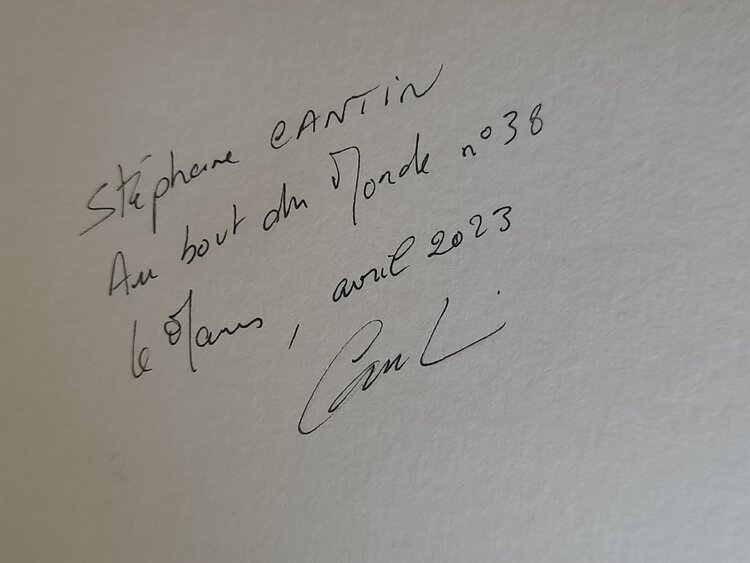 Stéphane CANTIN
Au bout du Monde n° 38
Le Mans, avril 2023